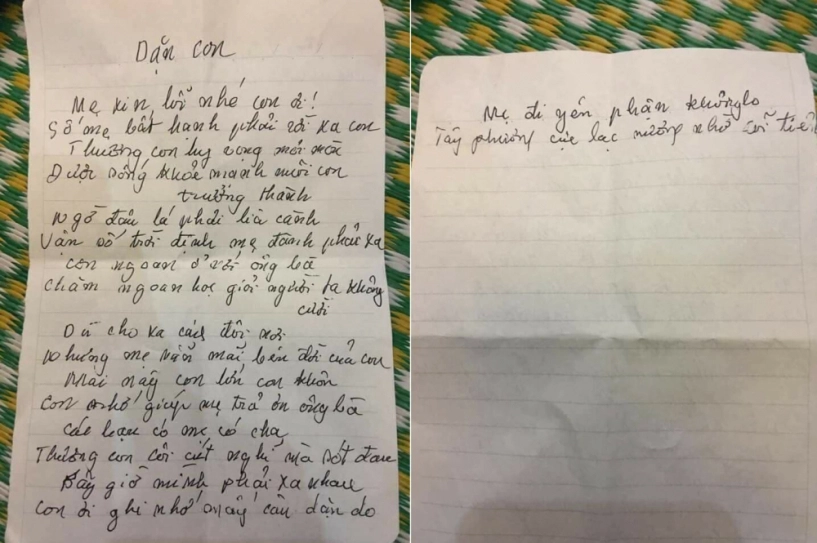 Dặn con
Mẹ xin lỗi nhé con ơi!
Số mẹ bất hạnh phải rời xa con
Thương con hy vọng mỏi mòn
Được sống khỏe mạnh nuôi con
trưởng thành
Ngờ đâu lá phải lìa cành
Vận số trời định mẹ đành phải xa
con ngoan ở với ông bà
chăm ngoan học giỏi người ta không
cười
Dù cho xa cách đôi nơi
Nhưng mẹ vẫn mãi bên đời của con
Mai này con lớn con khôn
Con nhớ giúp mẹ trả ơn ông bà
Các bạn có mẹ có cha
Thương con côi cút nghĩ mà xót đau
Bây giờ mình phải xa nhau
Con ơi ghi nhớ mấy câu dặn dò
Mẹ đi yên phận không lo
Tây phương cực lạc nương nhờ cõi tiên